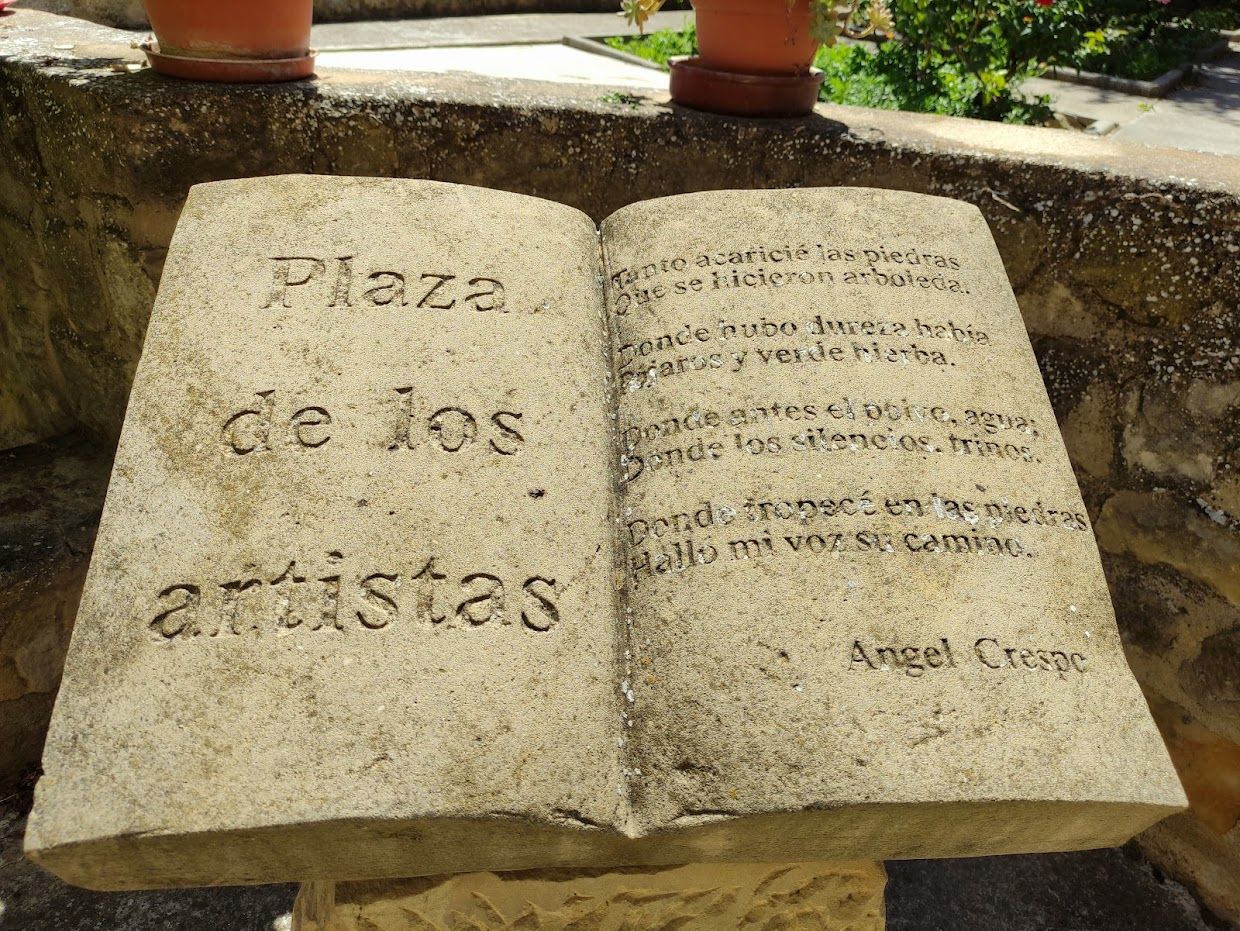 Plaza
de los
artistas
Tanto acaricié las piedras
Que se hicieron arboleda.
Donde hubo dureza había
Pájaros y verde hierba.
Donde antes el polvo, agua;
Donde los silencios, trinos.
Donde tropecé en las piedras
Halló mi voz su camino.
Angel Crespo